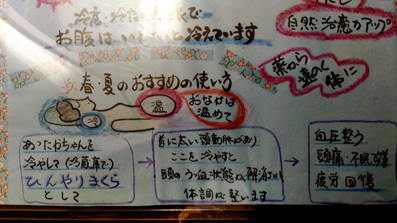 冷房、冷たい
お腹はいもっと冷えています
自然治癒力アップ
薬から
遠のく体に
春夏のおすすめの使い方
温
冷
おなかは
温めて
あったわちゃんを
冷やして(冷蔵庫で)
ひんやりまくら
として
首に太い頸動脈があり
ここを冷やすと
頭のうっ血状態を解消され
体調が整います
血圧整う
頭痛・不眠改善
疲労回復